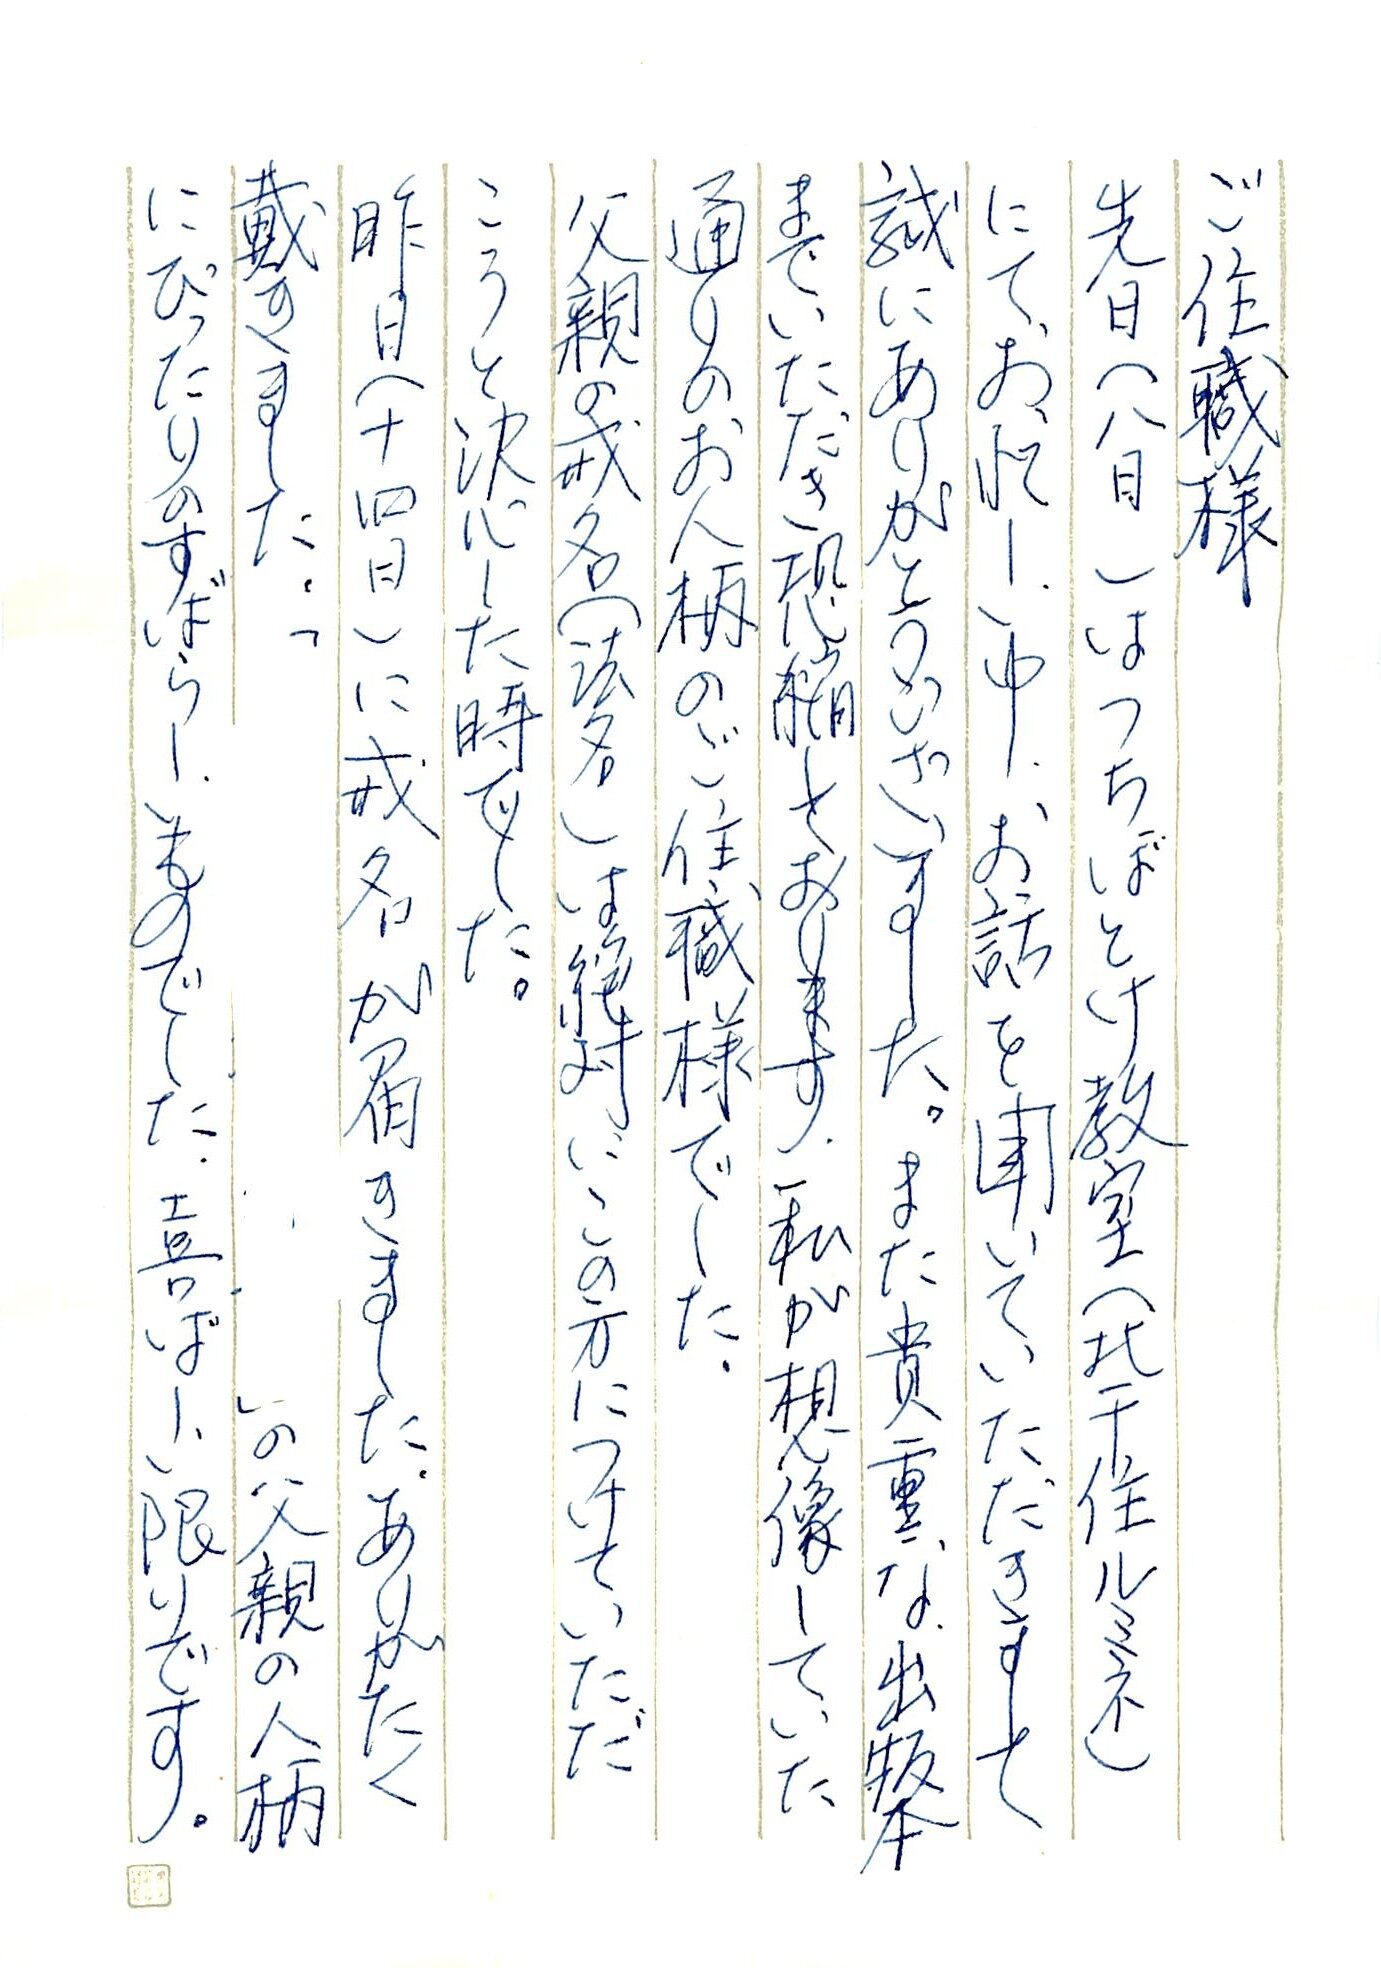 ご住職様
先日(八日)はつちぼとけ教室(北千住ルミネ)
にて、お忙しい中、お話を聞いていただきまして
誠にありがとうございました。また貴重な出版本
までいただき恐縮しております。私が想像していた
通りのお人柄のご住職様でした。
父親の戒名(法名)は絶対にこの方につけていただ
こうと決心した時でした。
昨日(十四日)に戒名が届きました。ありがたく
戴きました。「 」の父親の人柄
にぴったりのすばらしいものでした。喜ばしい限りです。